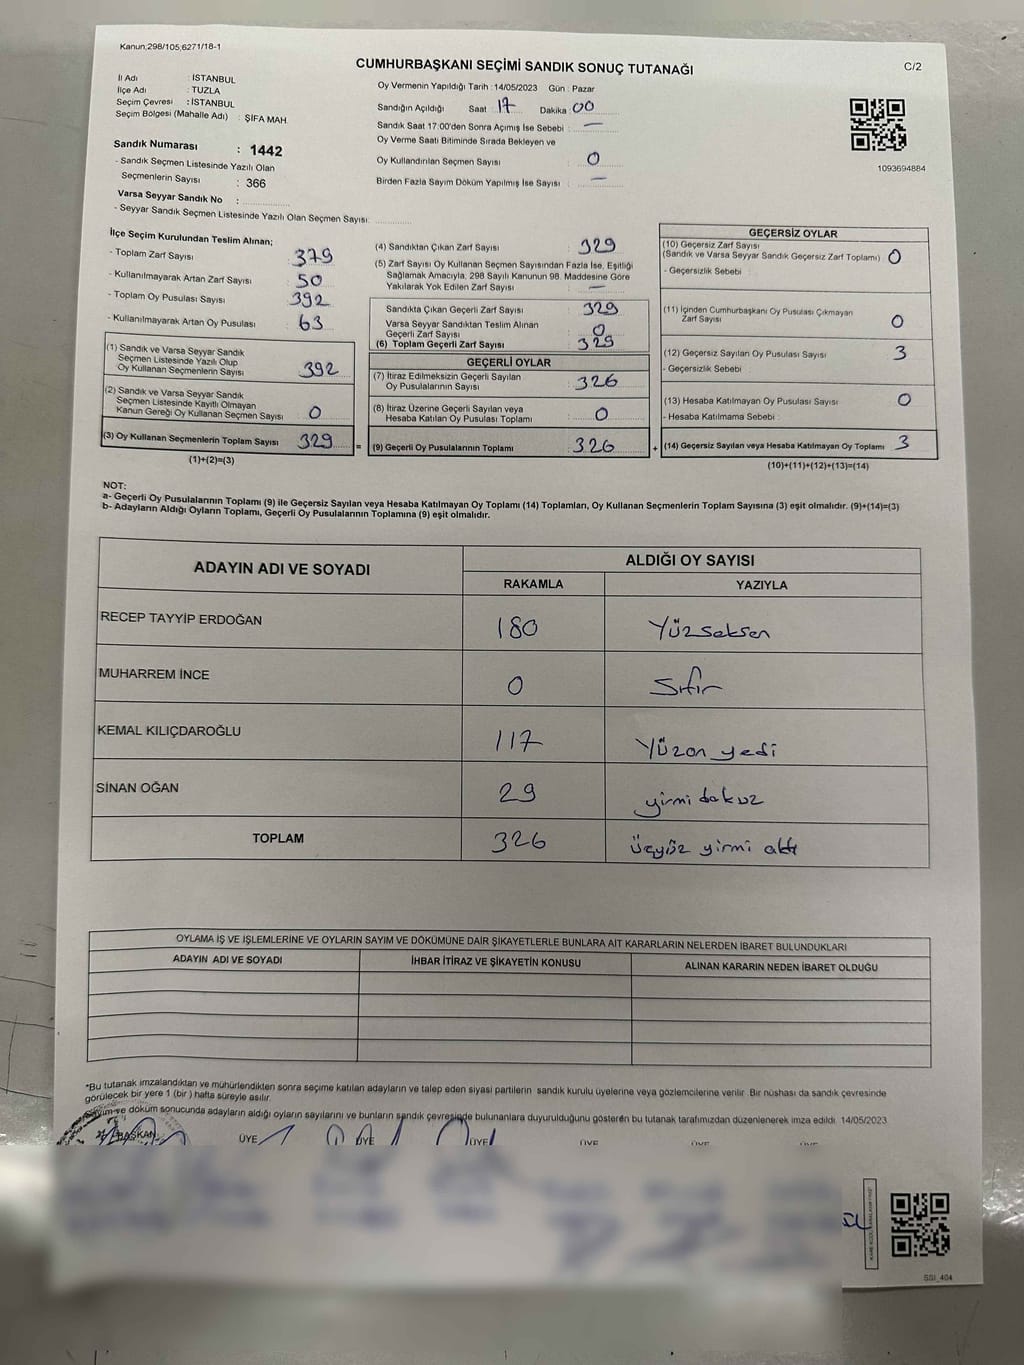 Kanun;298/105,6271/18-1
CUMHURBAŞKANI SEÇİMİ SANDIK SONUÇ TUTANAĞI
C/2
İl Adı : İSTANBUL
İlçe Adı : TUZLA
Seçim Çevresi : İSTANBUL
Seçim Bölgesi (Mahalle Adı) : ŞİFA MAH.
Sandık Numarası : 1442
- Sandık Seçmen Listesinde Yazılı Olan
Seçmenlerin Sayısı : 366
Varsa Seyyar Sandık No :
- Seyyar Sandık Seçmen Listesinde Yazılı Olan Seçmen Sayısı:
Oy Vermenin Yapıldığı Tarih :14/05/2023 Gün : Pazar
Sandığın Açıldığı Saat 17 Dakika 00
Sandık Saat 17:00'den Sonra Açımış İse Sebebi : —
Oy Verme Saati Bitiminde Sırada Bekleyen ve
Oy Kullandırılan Seçmen Sayısı : 0
Birden Fazla Sayım Döküm Yapılmış İse Sayısı : —
1093694884
İlçe Seçim Kurulundan Teslim Alınan;
- Toplam Zarf Sayısı : 379
- Kullanılmayarak Artan Zarf Sayısı : 50
- Toplam Oy Pusulası Sayısı : 392
- Kullanılmayarak Artan Oy Pusulası : 63
(1) Sandık ve Varsa Seyyar Sandık
Seçmen Listesinde Yazılı Olup
Oy Kullanan Seçmenlerin Sayısı : 392
(2) Sandık ve Varsa Seyyar Sandık
Seçmen Listesinde Kayıtlı Olmayan
Kanun Gereği Oy Kullanan Seçmen Sayısı : 0
(3) Oy Kullanan Seçmenlerin Toplam Sayısı : 329
(1)+(2)=(3)
(4) Sandıktan Çıkan Zarf Sayısı : 329
(5) Zarf Sayısı Oy Kullanan Seçmen Sayısından Fazla İse, Eşitliği
Sağlamak Amacıyla, 298 Sayılı Kanunun 98. Maddesine Göre
Yakılarak Yok Edilen Zarf Sayısı : —
Sandıkta Çıkan Geçerli Zarf Sayısı : 329
Varsa Seyyar Sandıktan Teslim Alınan
Geçerli Zarf Sayısı : 0
(6) Toplam Geçerli Zarf Sayısı : 329
GEÇERLİ OYLAR
(7) İtiraz Edilmeksizin Geçerli Sayılan
Oy Pusulalarının Sayısı : 326
(8) İtiraz Üzerine Geçerli Sayılan veya
Hesaba Katılan Oy Pusulası Toplamı : 0
= (9) Geçerli Oy Pusulalarının Toplamı : 326
GEÇERSİZ OYLAR
(10) Geçersiz Zarf Sayısı
(Sandık ve Varsa Seyyar Sandık Geçersiz Zarf Toplamı) : 0
- Geçersizlik Sebebi :
(11) İçinden Cumhurbaşkanı Oy Pusulası Çıkmayan
Zarf Sayısı : 0
(12) Geçersiz Sayılan Oy Pusulası Sayısı : 3
- Geçersizlik Sebebi :
(13) Hesaba Katılmayan Oy Pusulası Sayısı : 0
- Hesaba Katılmama Sebebi :
+ (14) Geçersiz Sayılan veya Hesaba Katılmayan Oy Toplamı : 3
(10)+(11)+(12)+(13)=(14)
NOT:
a- Geçerli Oy Pusulalarının Toplamı (9) ile Geçersiz Sayılan veya Hesaba Katılmayan Oy Toplamı (14) Toplamları, Oy Kullanan Seçmenlerin Toplam Sayısına (3) eşit olmalıdır. (9)+(14)=(3)
b- Adayların Aldığı Oyların Toplamı, Geçerli Oy Pusulalarının Toplamına (9) eşit olmalıdır.
ADAYIN ADI VE SOYADI
ALDIĞI OY SAYISI
RAKAMLA YAZIYLA
RECEP TAYYİP ERDOĞAN 180 Yüzseksen
MUHARREM İNCE 0 Sıfır
KEMAL KILIÇDAROĞLU 117 Yüzon yedi
SİNAN OĞAN 29 yirmi dokuz
TOPLAM 326 üçyüz yirmi altı
OYLAMA İŞ VE İŞLEMLERİNE VE OYLARIN SAYIM VE DÖKÜMÜNE DAİR ŞİKAYETLERLE BUNLARA AİT KARARLARIN NELERDEN İBARET BULUNDUKLARI
ADAYIN ADI VE SOYADI İHBAR İTİRAZ VE ŞİKAYETİN KONUSU ALINAN KARARIN NEDEN İBARET OLDUĞU
*Bu tutanak imzalandıktan ve mühürlendikten sonra seçime katılan adayların ve talep eden siyasi partilerin sandık kurulu üyelerine veya gözlemcilerine verilir. Bir nüshası da sandık çevresinde
görülecek bir yere 1 (bir ) hafta süreyle asılır.
ve döküm sonucunda adayların aldığı oyların sayılarını ve bunların sandık çevresinde bulunanlara duyurulduğunu gösteren bu tutanak tarafımızdan düzenlenerek imza edildi. 14/05/2023
BAŞKAN ÜYE ÜYE ÜYE ÜYE ÜYE ÜYE
SSI_404